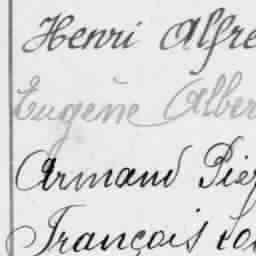 Henri Alfre
Eugène Alber
Armand Pie
François Lo